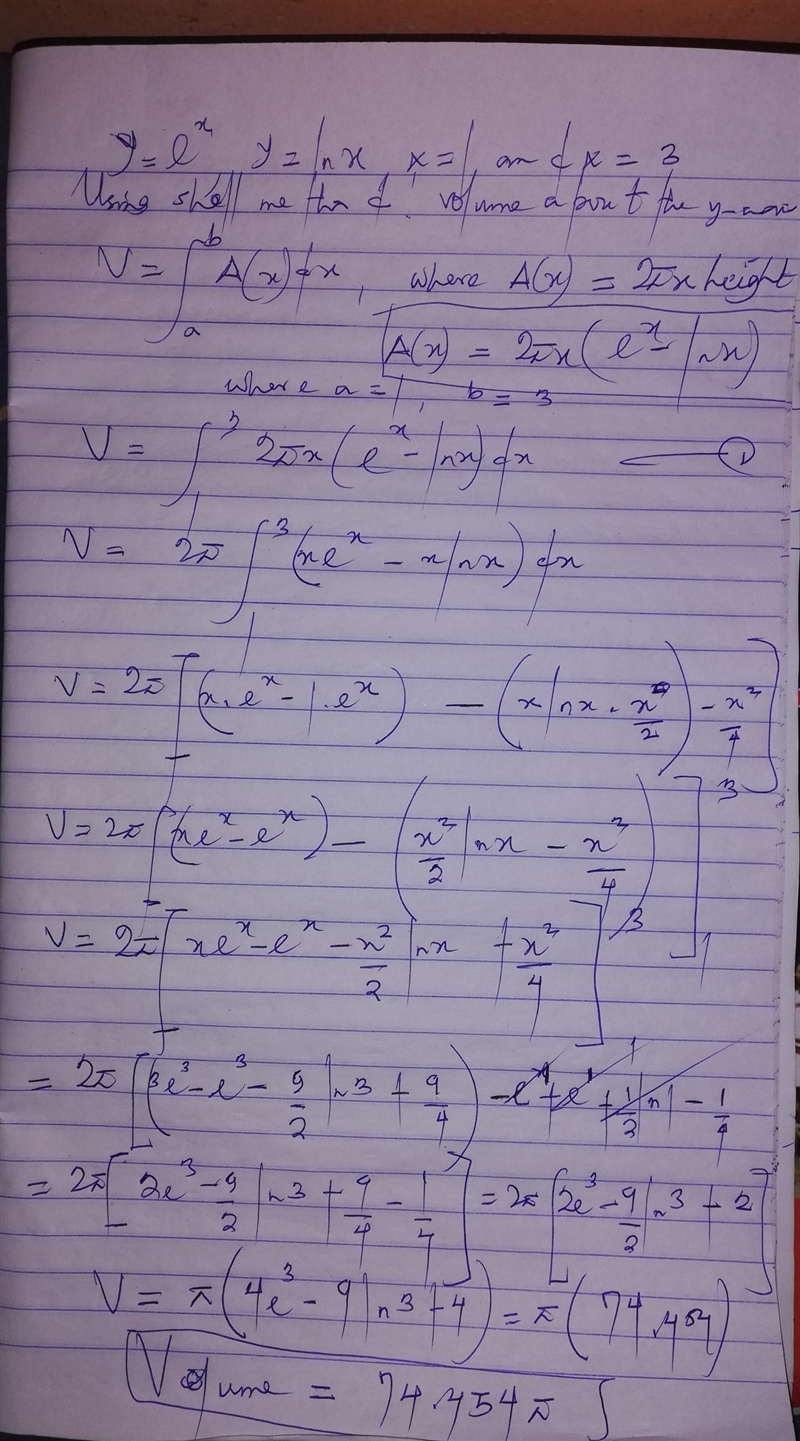 y = e^x y = lnx x = 1 and x = 3
Using shell method, volume about the y-axis
V = ∫_a^b A(x)dx, where A(x) = 2πx height
A(x) = 2πx(e^x - lnx)
where a = 1, b = 3
V = ∫_1^3 2πx(e^x - lnx)dx — ①
V = 2π ∫_1^3 (xe^x - xlnx)dx
V = 2π[(x.e^x - 1.e^x) - (xlnx . x²/2) - x²/4]
V = 2π[(xe^x - e^x) - (x²/2 lnx - x²/4)]_1^3
V = 2π[xe^x - e^x - x²/2 lnx + x²/4]^3
= 2π[(3e³ - e³ - 9/2 ln3 + 9/4) - e^1 + e^1 + 1/2 ln1 - 1/4
= 2π[2e³ - 9/2 ln3 + 9/4 - 1/4] = 2π[2e³ - 9/2 ln3 + 2]
V = π(4e³ - 9ln3 + 4) = π(74.454)
Volume = 74.454π